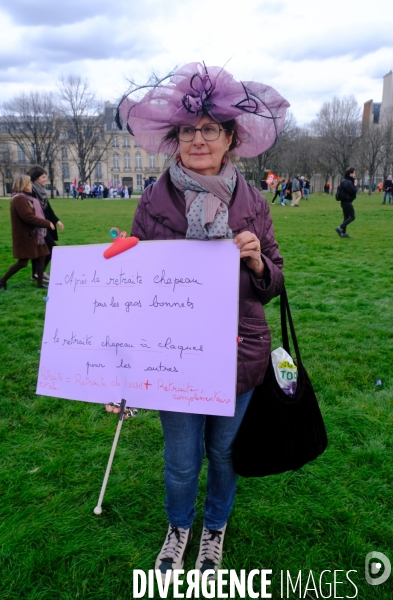 _ Après la retraite chapeau
pas les gros bonnets
la retraite chapeau à claques
pour les autres
= Retraite de base + Retraite
complémentaire
TO
DIVERGENCE IMAGES
D